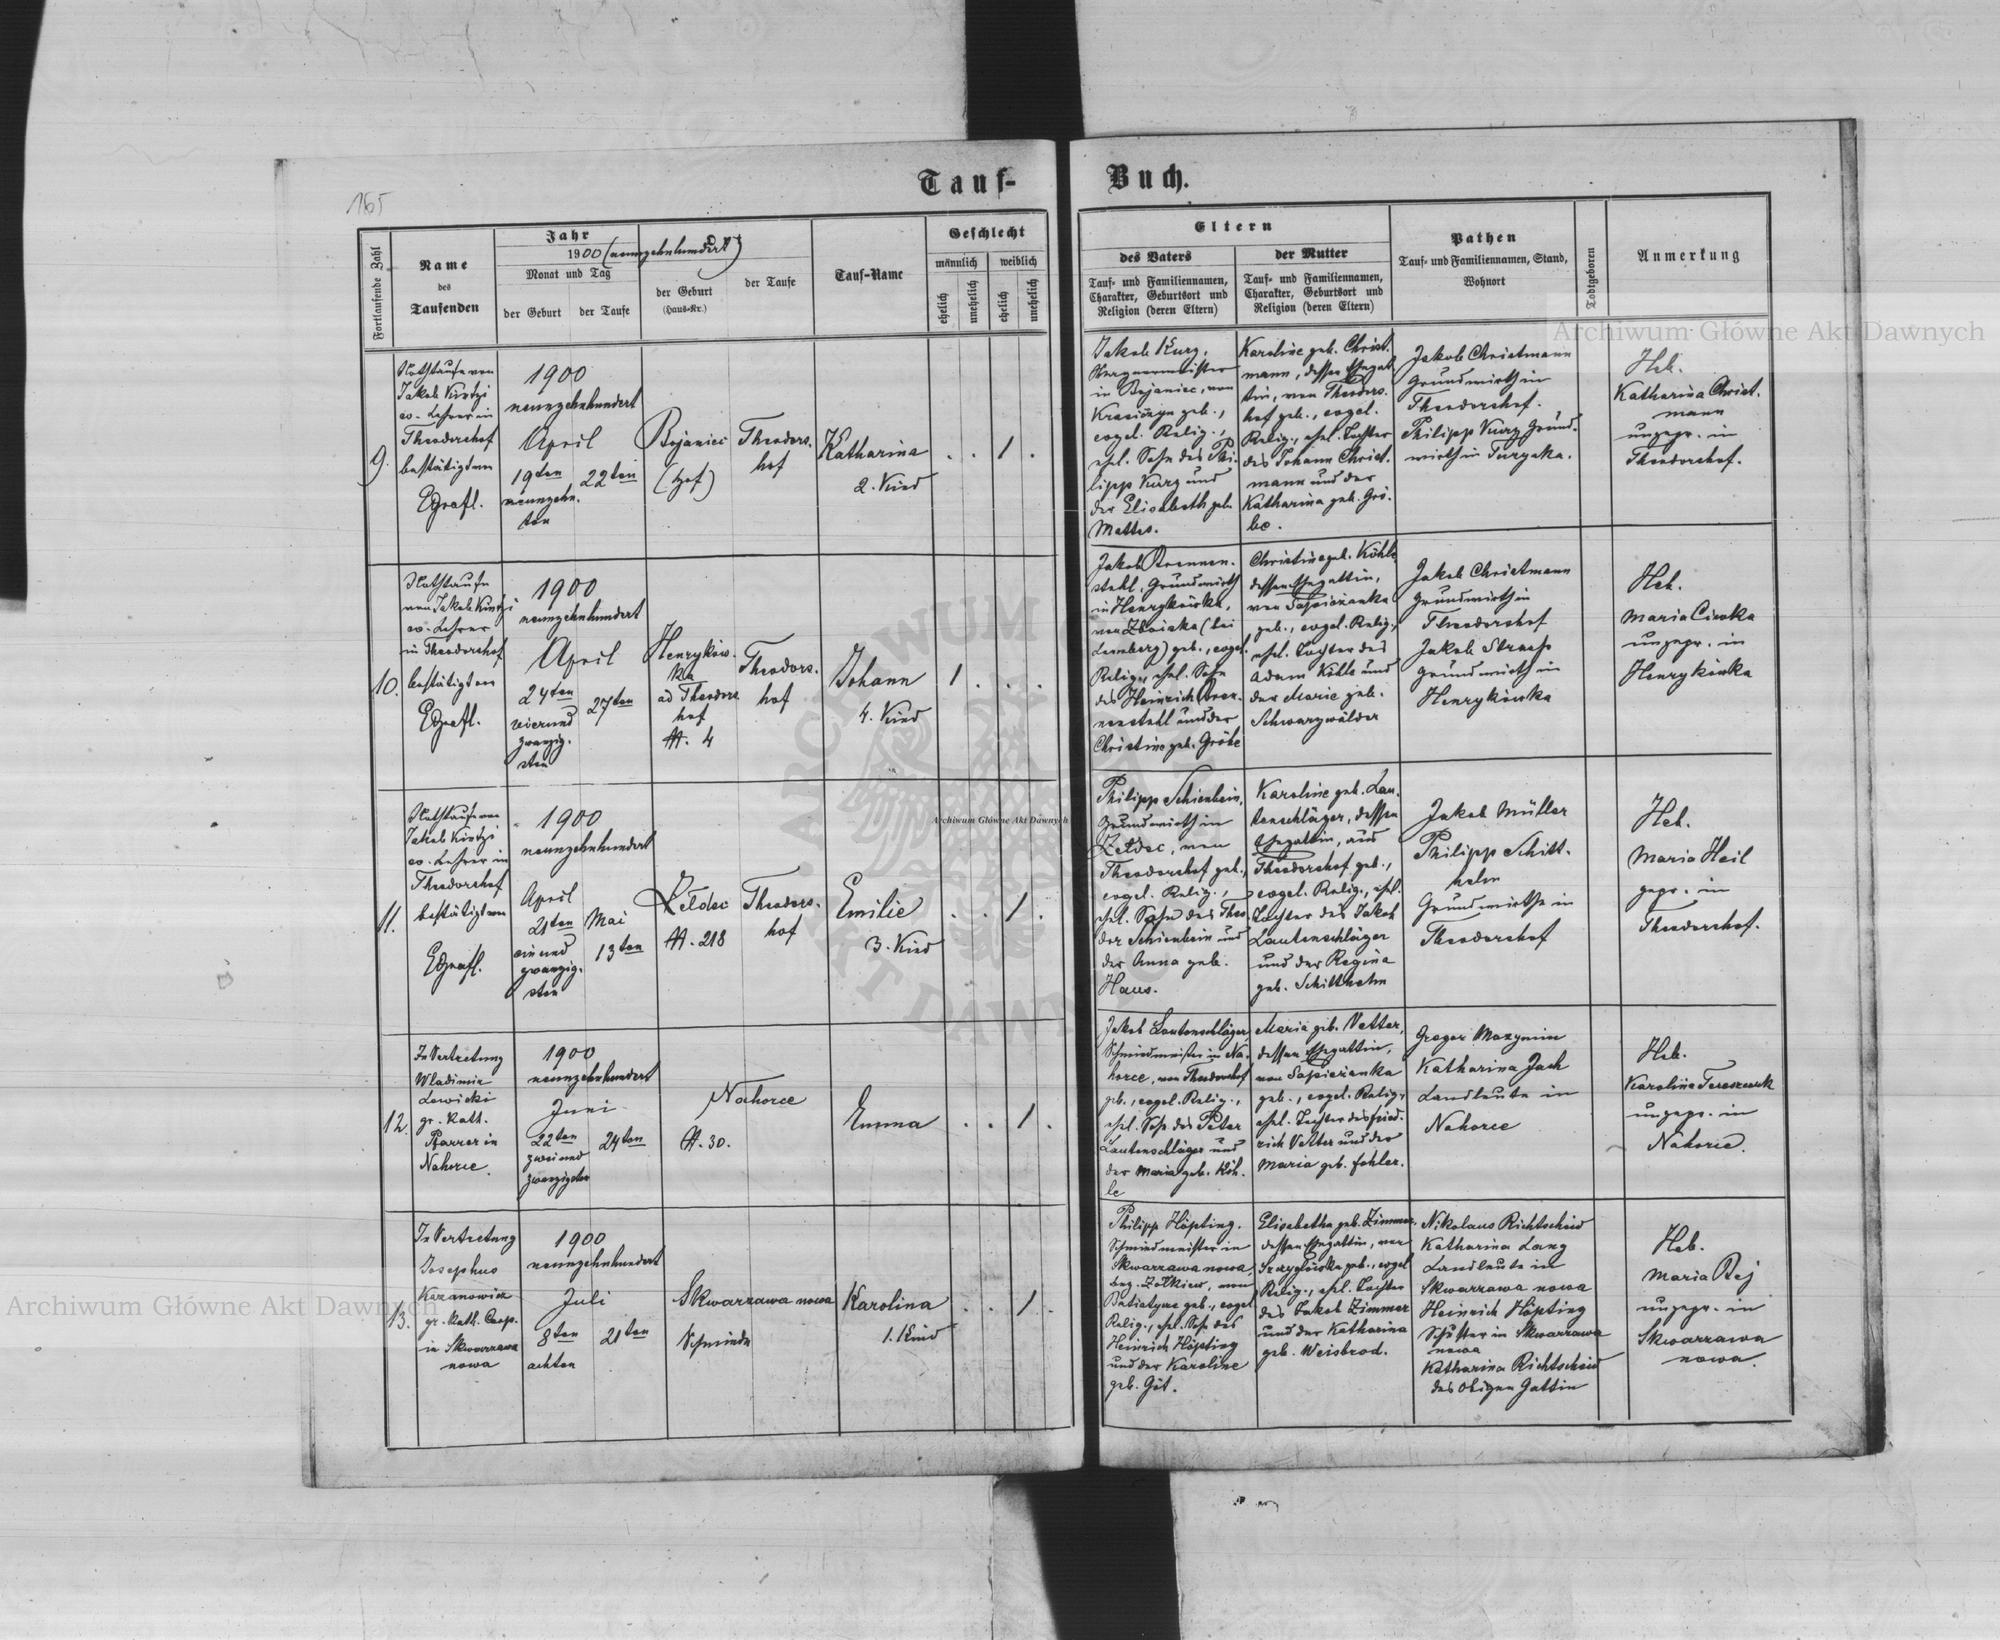 165
Tauf-
Buch.
Fortlaufende Zahl
Name
des
Taufenden
Jahr
1900 (neunzehnhundert)
Monat und Tag
der Geburt
der Taufe
der Geburt
(Haus-Nr.)
der Taufe
Tauf-Name
Geschlecht
männlich
weiblich
ehelich
unehelich
ehelich
unehelich
Eltern
des Vaters
Tauf- und Familiennamen,
Charakter, Geburtsort und
Religion (deren Eltern)
der Mutter
Tauf- und Familiennamen,
Charakter, Geburtsort und
Religion (deren Eltern)
Pathen
Tauf- und Familiennamen, Stand,
Wohnort
Todtgeboren
Anmerkung
9.
Nothtaufe von
Jakob
ev. Lehrer in
Theodorshof
bestätigt von
1900
neunzehnhundert
April
19ten
neunzehn.
ten
22ten
Bojaniec
(Hof)
Theodors.
hof
Katharina
2. Kind
. . 1 .
Jakob Kurz,
in Bojaniec, von
geb.,
evgel. Relig.,
ehl. Sohn des Phi.
lipp Kurz und
der Elisabeth geb.
Mattes.
Karoline geb. Christ.
mann, dessen Ehegat
tin, von Theodors.
hof geb., evgel.
Relig., ehel. Tochter
des Johann Christ.
mann und der
Katharina geb. Grö.
be.
Jakob Christmann
Grundwirth in
Theodorshof.
Philipp Kurz Grund.
wirth in Turynka.
Heb.
Katharina Christ.
mann
ungepr. in
Theodorshof.
10.
Nothtaufe
von Jakob
ev. Lehrer
in Theodorshof
bestätigt von
1900
neunzehnhundert
April
24ten
vierund
zwanzig.
sten
27ten
Henryków.
ka
ad Theodors
hof
N. 4
Theodors.
hof
Johann
4. Kind
1 . . .
Jakob Brennen.
stuhl, Grundwirth
in Henrykówka,
von Zboiska (bei
Lemberg) geb., evgel.
Relig., ehel. Sohn
des Heinrich Bren.
nenstuhl und der
Christine geb. Gröbe
Christine geb. Köhle
dessen Ehegattin,
von Sapiezanka
geb., evgel. Relig.,
ehel. Tochter des
Adam Köhle und
der Marie geb.
Schwarzwälder
Jakob Christmann
Grundwirth in
Theodorshof
Jakob Strauss
Grundwirth in
Henrykówka
Heb.
Maria
ungepr. in
Henrykówka
11.
Nothtaufe von
Jakob
ev. Lehrer in
Theodorshof
bestätigt von
1900
neunzehnhundert
April
21ten
ein und
zwanzig.
sten
Mai
13ten
Żełdec
N. 218
Theodors.
hof
Emilie
3. Kind
. . 1 .
Philipp Schienbein,
Grundwirth in
Żełdec, von
Theodorshof geb.,
evgel. Relig.,
ehl. Sohn des Theo
dor Schienbein und
der Anna geb.
Haus.
Karoline geb. Lau.
tenschläger, dessen
Ehegattin, aus
Theodorshof geb.,
evgel. Relig., ehel.
Tochter des Jakob
Lautenschläger
und der Regina
geb. Schitthelm
Jakob Müller
Philipp Schitt.
helm
Grundwirthe in
Theodorshof
Heb.
Maria Heil
gepr. in
Theodorshof.
12.
In Vertretung
Wladimir
Lewicki
gr. kath.
Pfarrer in
Nahorce.
1900
neunzehnhundert
Juni
22ten
zwei und
zwanzigsten
24ten
Nahorce
N. 30.
Emma
. . 1 .
Jakob Lautenschläger
Schmiedmeister in Na.
horce, von Theodorshof
geb., evgel. Relig.,
ehel. Sohn des Peter
Lautenschläger und
der Maria geb. Köh.
le
Maria geb. Vetter,
dessen Ehegattin,
von Sapiezanka
geb., evgel. Relig.,
ehel. Tochter des Fried.
rich Vetter und der
Maria geb. Fohler.
Gregor
Katharina Jach
Landleute in
Nahorce
Heb.
Karolina
ungepr. in
Nahorce.
13.
In Vertretung
Josephus
Kazanowicz
gr. kath. Coop.
in Skwarzawa
nowa
1900
neunzehnhundert
Juli
8ten
achten
21ten
Skwarzawa nowa
Schmiede
Karolina
1. Kind
. . 1 .
Philipp Höpting.
Schmiedmeister in
Skwarzawa nowa
bez. Żółkiew, von
Batiatycze geb., evgel
Relig., ehel. Sohn des
Heinrich Höpting
und der Karoline
geb. Göt.
Elisabetha geb. Zimmer.
dessen Ehegattin, von
geb., evgel
Relig., ehel. Tochter
des Jakob Zimmer
und der Katharina
geb. Weisbrod.
Nikolaus Richtscheid
Katharina Lang
Landleute in
Skwarzawa nowa
Heinrich Höpting
Schuster in Skwarzawa
nowa
Katharina Richtscheid
des obigen Gattin
Heb.
Maria Rej
ungepr. in
Skwarzawa
nowa.
Archiwum Główne Akt Dawnych
Archiwum Główne Akt Dawnych
Archiwum Główne Akt Dawnych
ARCHIWUM
AKT DAWN